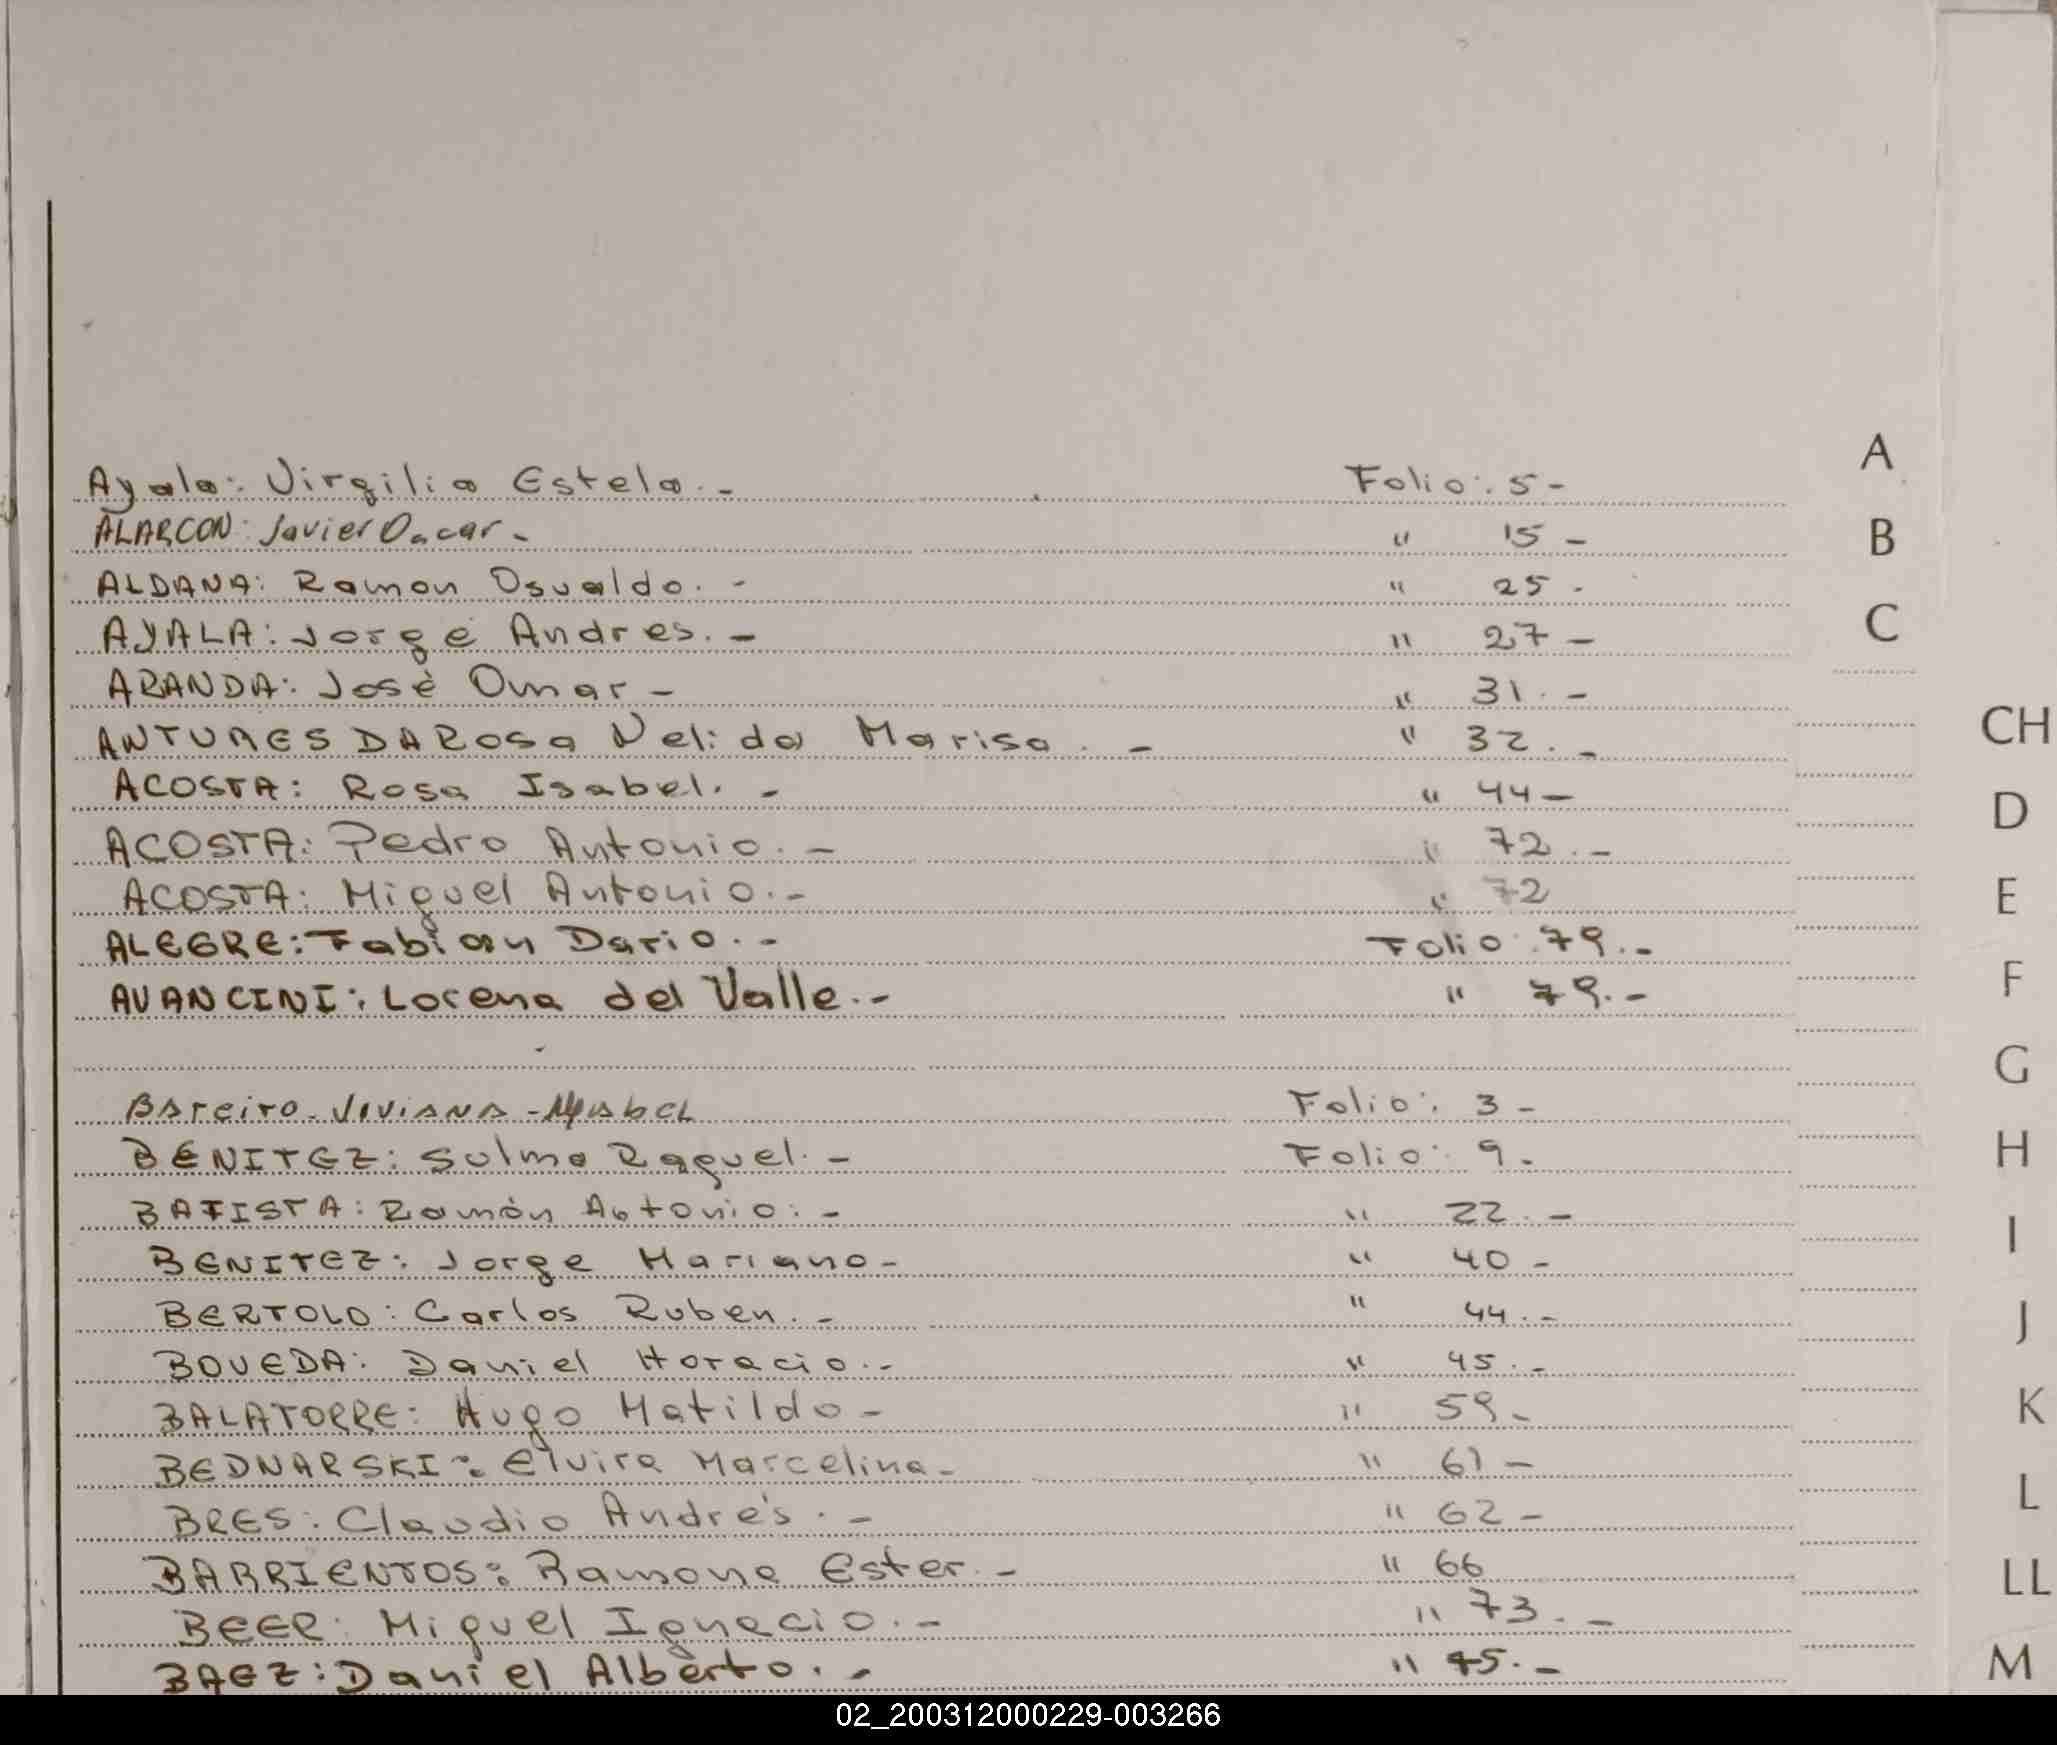 Ayala: Virgilia Estela.- Folio: 5-
ALARCON: Javier Oscar- " 15-
ALDANA: Ramon Osvaldo.- " 25-
AYALA: Jorge Andres.- " 27-
ARANDA: José Omar- " 31.-
ANTUNES DA Rosa Nelida Marisa.- " 32.-
ACOSTA: Rosa Isabel.- " 44-
ACOSTA: Pedro Antonio.- " 72.-
ACOSTA: Miguel Antonio.- " 72
ALEGRE: Fabian Dario.- Folio: 79.-
AVANCINI: Lorena del Valle.- " 79.-
BAreiro-VIVIANA-MabeL Folio: 3-
BENITEZ: Sulma Raquel.- Folio: 9-
BATISTA: Ramón Antonio.- " 22.-
BENITEZ: Jorge Mariano- " 40-
BERTOLO: Carlos Ruben.- " 44.-
BOVEDA: Daniel Horacio.- " 45.-
BALATORRE: Hugo Matildo- " 59-
BEDNARSKI: Elvira Marcelina- " 61-
BRES: Claudio Andrés.- " 62-
BARRIENTOS: Ramona Ester.- " 66
BEER: Miguel Ignacio.- " 73.-
BAEZ: Daniel Alberto.- " 75.-
A
B
C
CH
D
E
F
G
H
I
J
K
L
LL
M
02_200312000229-003266